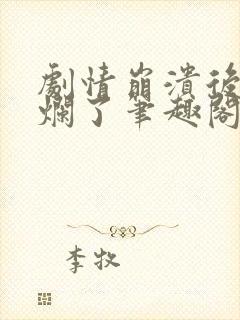 劇情崩潰後
爛了筆趣閣
李牧